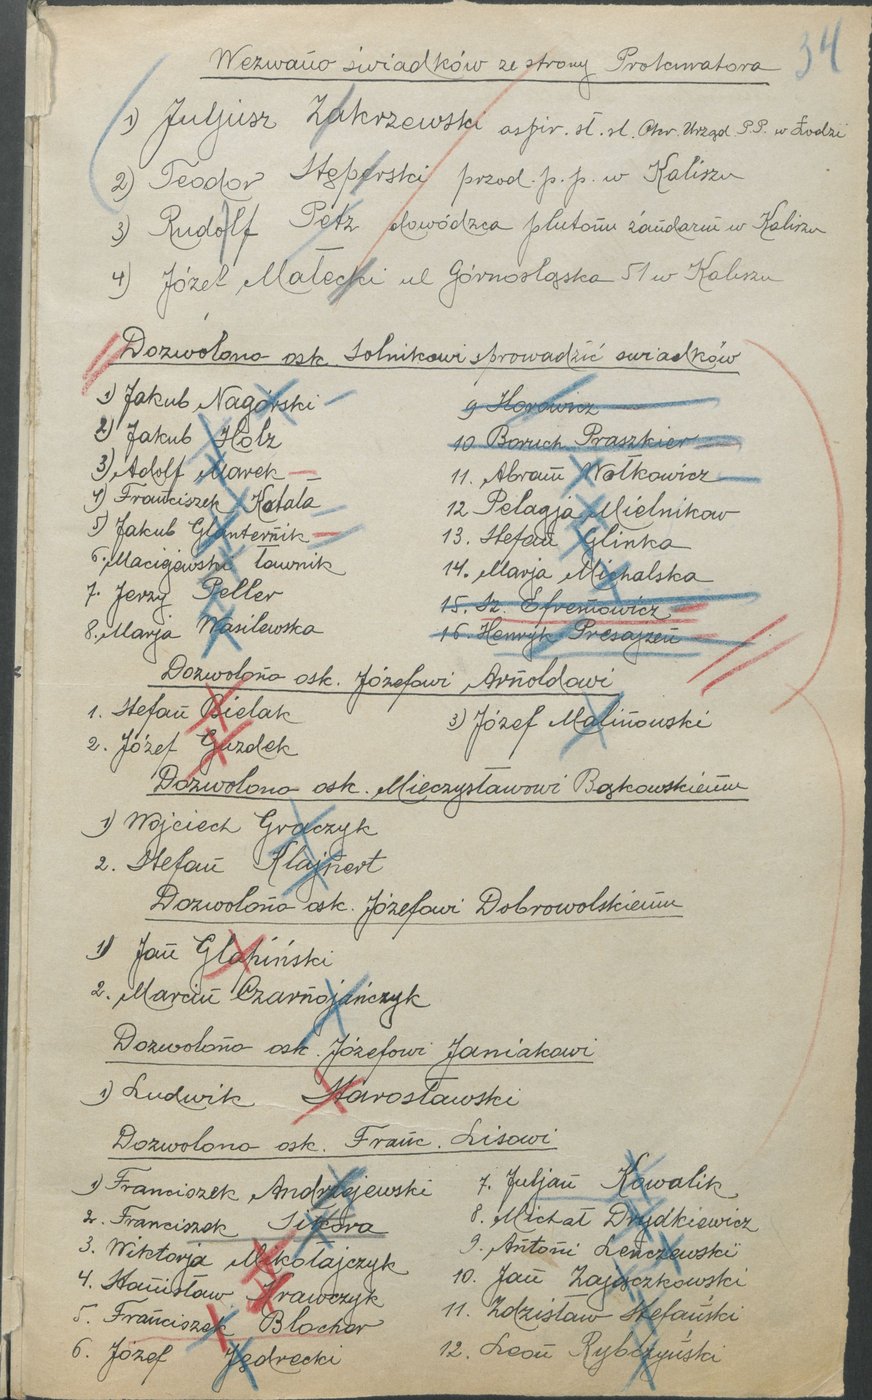 34
Wezwano świadków ze strony Prokuratora
1) Juljusz Zakrzewski aspir. sł. śl. Okr. Urząd. P.P. w Łodzi
2) Teodor Stęperski przod. p.p. w Kaliszu
3) Rudolf Petz dowódzca plutonu żandarm w Kaliszu
4) Józef Małecki ul Górnośląska 51 w Kaliszu
Dozwolono osk. Solnikowi sprowadzić świadków
1) Jakub Nagórski
2) Jakub Holz
3) Adolf Marek
4) Franciszek Katala
5) Jakub Glanternik
6. Maciejewski ławnik
7. Jerzy Peller
8. Marja Wasilewska
9 Horowicz
10 Boruch Praszkier
11. Abram Wołkowicz
12 Pelagja Mielnikow
13. Stefan Glinka
14. Marja Michalska
15. Sz. Efremowicz
16 Henryk Presajzen
Dozwolono osk. Józefowi Arnoldowi
1. Stefan Bielak
2. Józef Guzdek
3) Józef Malinowski
Dozwolono osk. Mieczysławowi Bąkowskiemu
1) Wojciech Graczyk
2. Stefan Klajnert
Dozwolono osk. Józefowi Dobrowolskiemu
1) Jan Glapiński
2. Marcin Czarnojańczyk
Dozwolono osk. Józefowi Janiakowi
1) Ludwik Starosławski
Dozwolono osk. Franc. Lisowi
1) Franciszek Andrzejewski
2. Franciszek Sikora
3. Wiktorja Mikołajczyk
4. Stanisław Krawczyk
5. Franciszek Blochar
6. Józef Jędrecki
7. Juljan Kowalik
8. Michał Drydkiewicz
9. Antoni Lenczewski
10. Jan Zajączkowski
11. Zdzisław Stefański
12. Leon Rybczyński